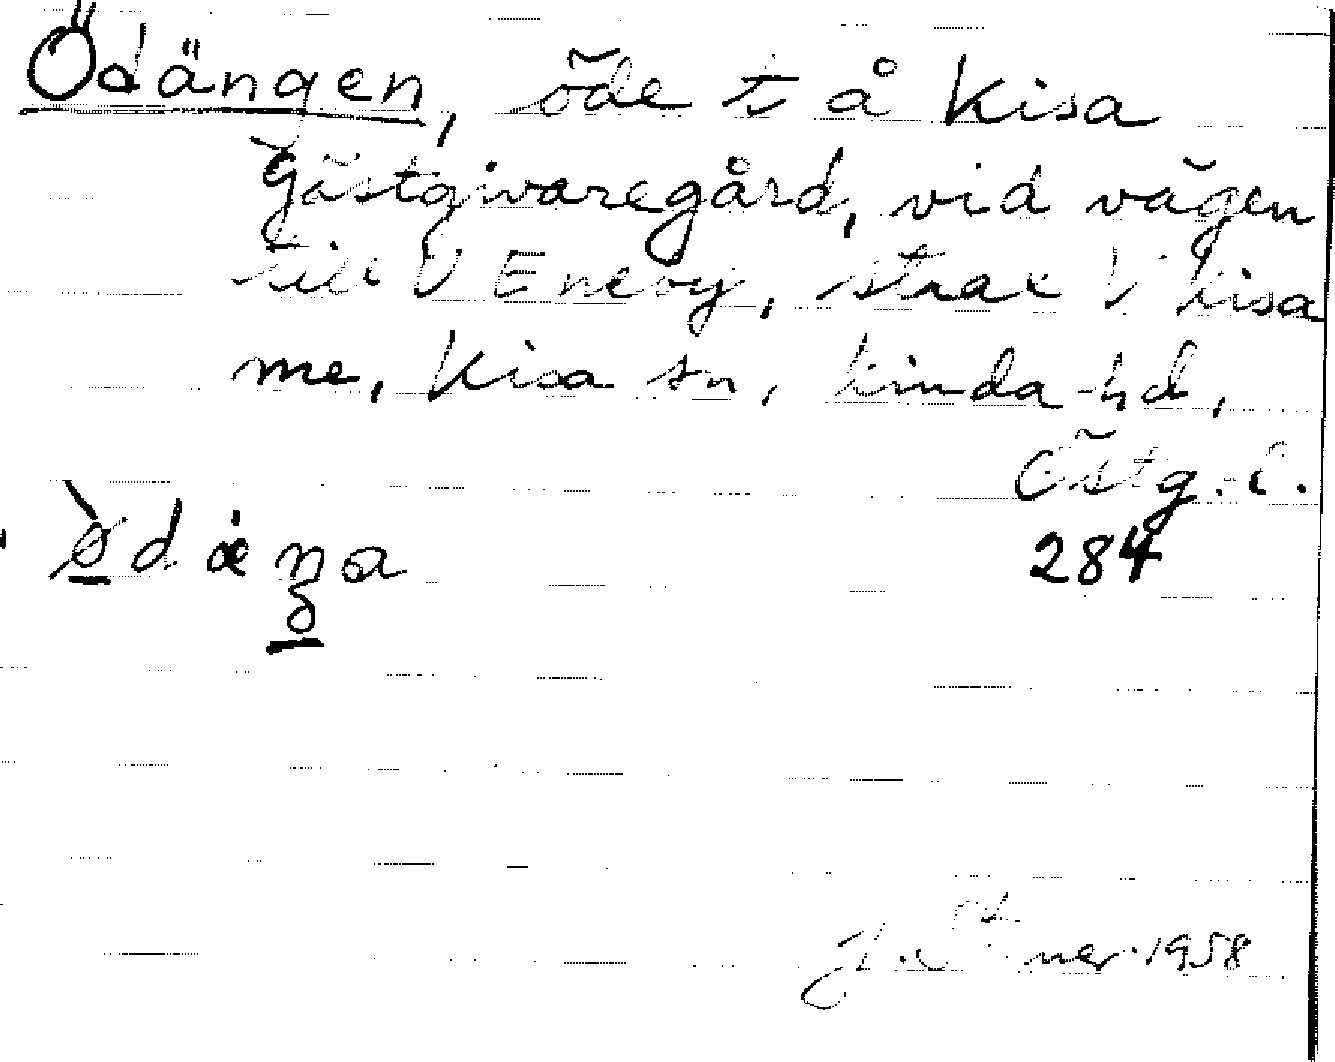 Ödängen, öde t å Kisa
Gästgivaregård, vid vägen
till V Eneby, strax V Kisa
me, Kisa sn, Kinda hd,
Östg. l.
284
1958